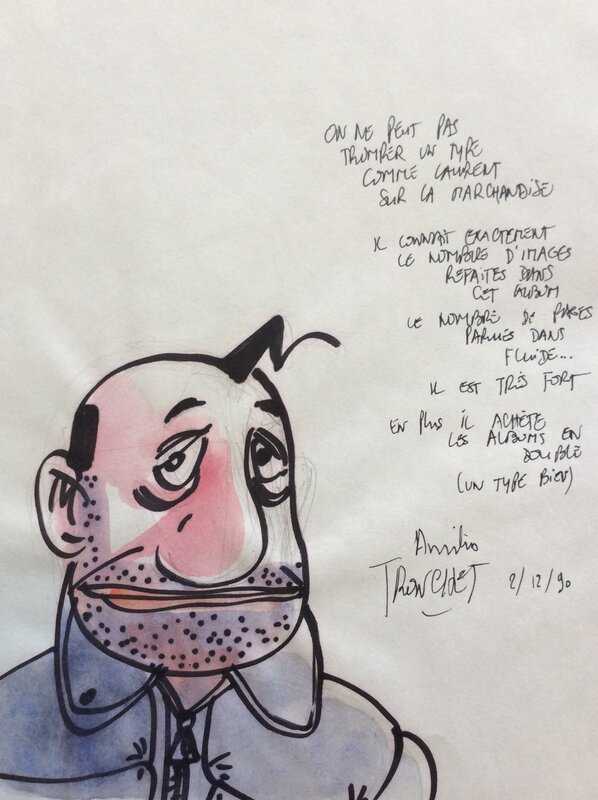 ON NE PEUT PAS
TROMPER UN TYPE
COMME LAURENT
SUR LA MARCHANDISE
IL CONNAIT EXACTEMENT
LE NOMBRE D'IMAGES
REFAITES DANS
CET ALBUM
LE NOMBRE DE PAGES
PARUES DANS
FLUIDE...
IL EST TRÈS FORT
EN PLUS IL ACHÈTE
LES ALBUMS EN
DOUBLE
(UN TYPE BIEN)
Amitiés
TRONCHET 2/12/90